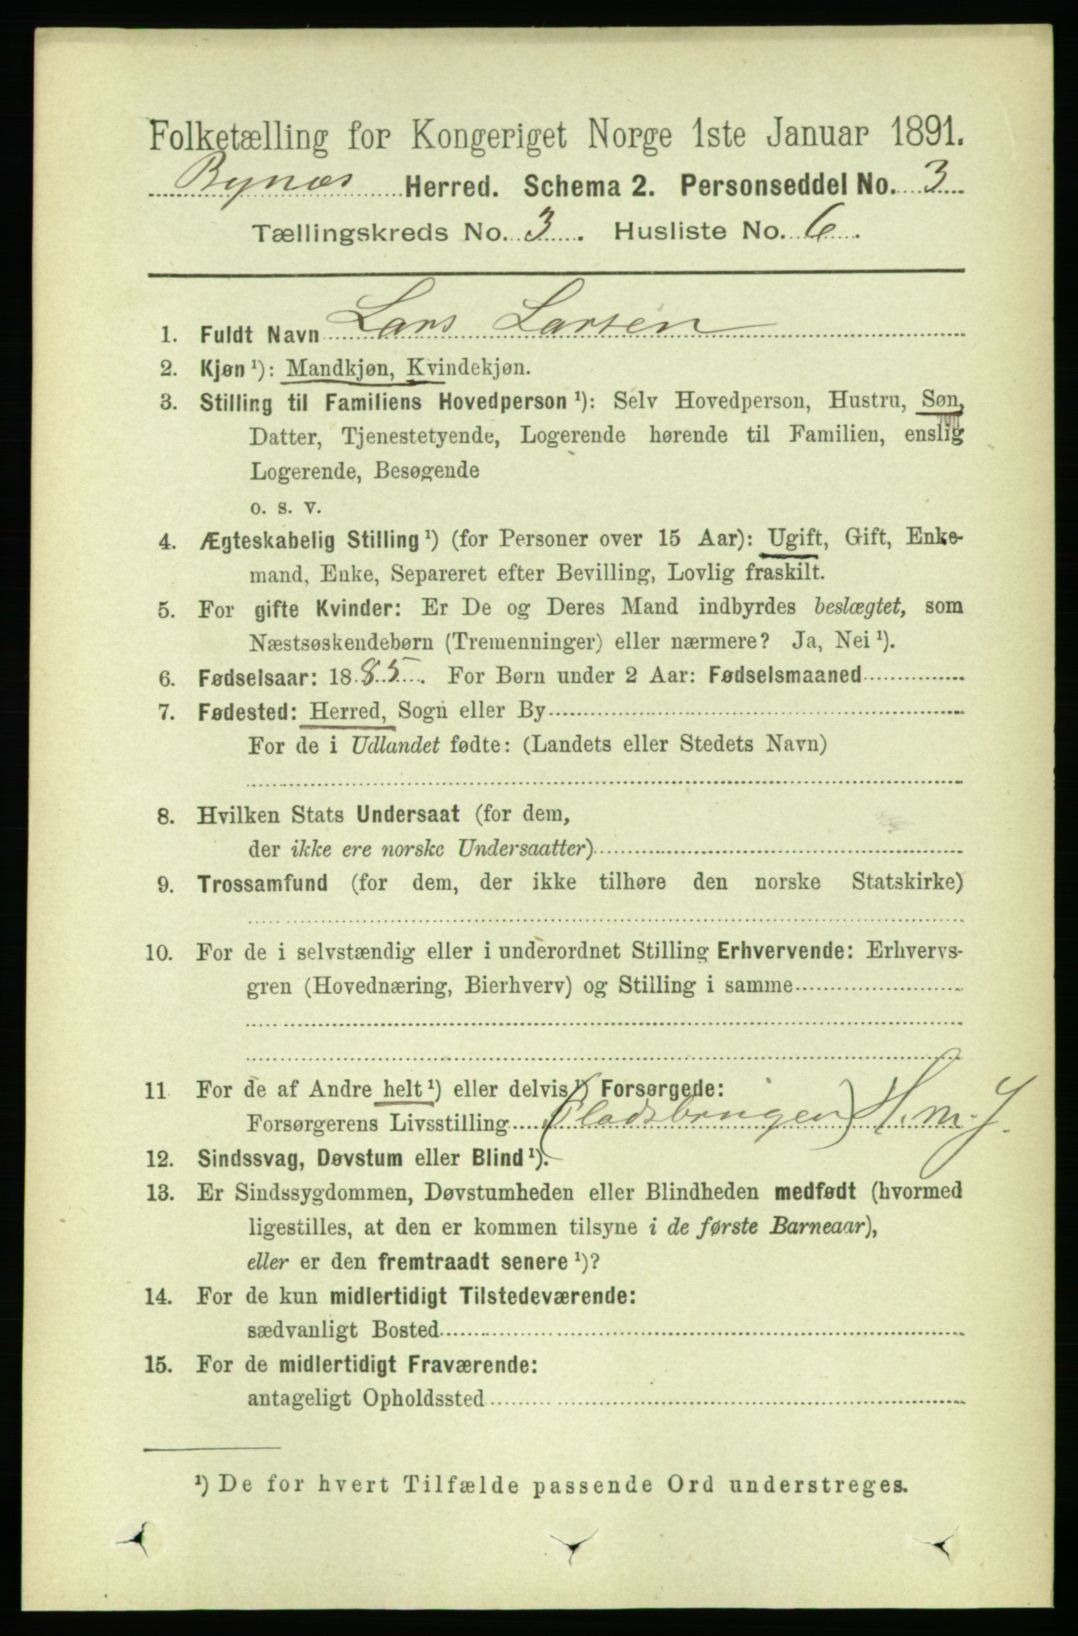 Folketælling for Kongeriget Norge 1ste Januar 1891.
Bynæs Herred. Schema 2. Personseddel No. 3
Tællingskreds No. 3. Husliste No. 6.
1. Fuldt Navn Lars Larsen
2. Kjøn ¹): Mandkjøn, Kvindekjøn.
3. Stilling til Familiens Hovedperson ¹): Selv Hovedperson, Hustru, Søn,
Datter, Tjenestetyende, Logerende hørende til Familien, enslig
Logerende, Besøgende
o. s. v.
4. Ægteskabelig Stilling ¹) (for Personer over 15 Aar): Ugift, Gift, Enke-
mand, Enke, Separeret efter Bevilling, Lovlig fraskilt.
5. For gifte Kvinder: Er De og Deres Mand indbyrdes beslægtet, som
Næstsøskendebørn (Tremenninger) eller nærmere? Ja, Nei ¹).
6. Fødselsaar: 1885. For Børn under 2 Aar: Fødselsmaaned
7. Fødested: Herred, Sogn eller By
For de i Udlandet fødte: (Landets eller Stedets Navn)
8. Hvilken Stats Undersaat (for dem,
der ikke ere norske Undersaatter)
9. Trossamfund (for dem, der ikke tilhøre den norske Statskirke)
10. For de i selvstændig eller i underordnet Stilling Erhvervende: Erhvervs-
gren (Hovednæring, Bierhverv) og Stilling i samme
11 For de af Andre helt ¹) eller delvis ¹) Forsørgede:
Forsørgerens Livsstilling (Pladsbrugen) H. m. J.
12. Sindssvag, Døvstum eller Blind ¹).
13. Er Sindssygdommen, Døvstumheden eller Blindheden medfødt (hvormed
ligestilles, at den er kommen tilsyne i de første Barneaar),
eller er den fremtraadt senere ¹)?
14. For de kun midlertidigt Tilstedeværende:
sædvanligt Bosted
15. For de midlertidigt Fraværende:
antageligt Opholdssted
¹) De for hvert Tilfælde passende Ord understreges.